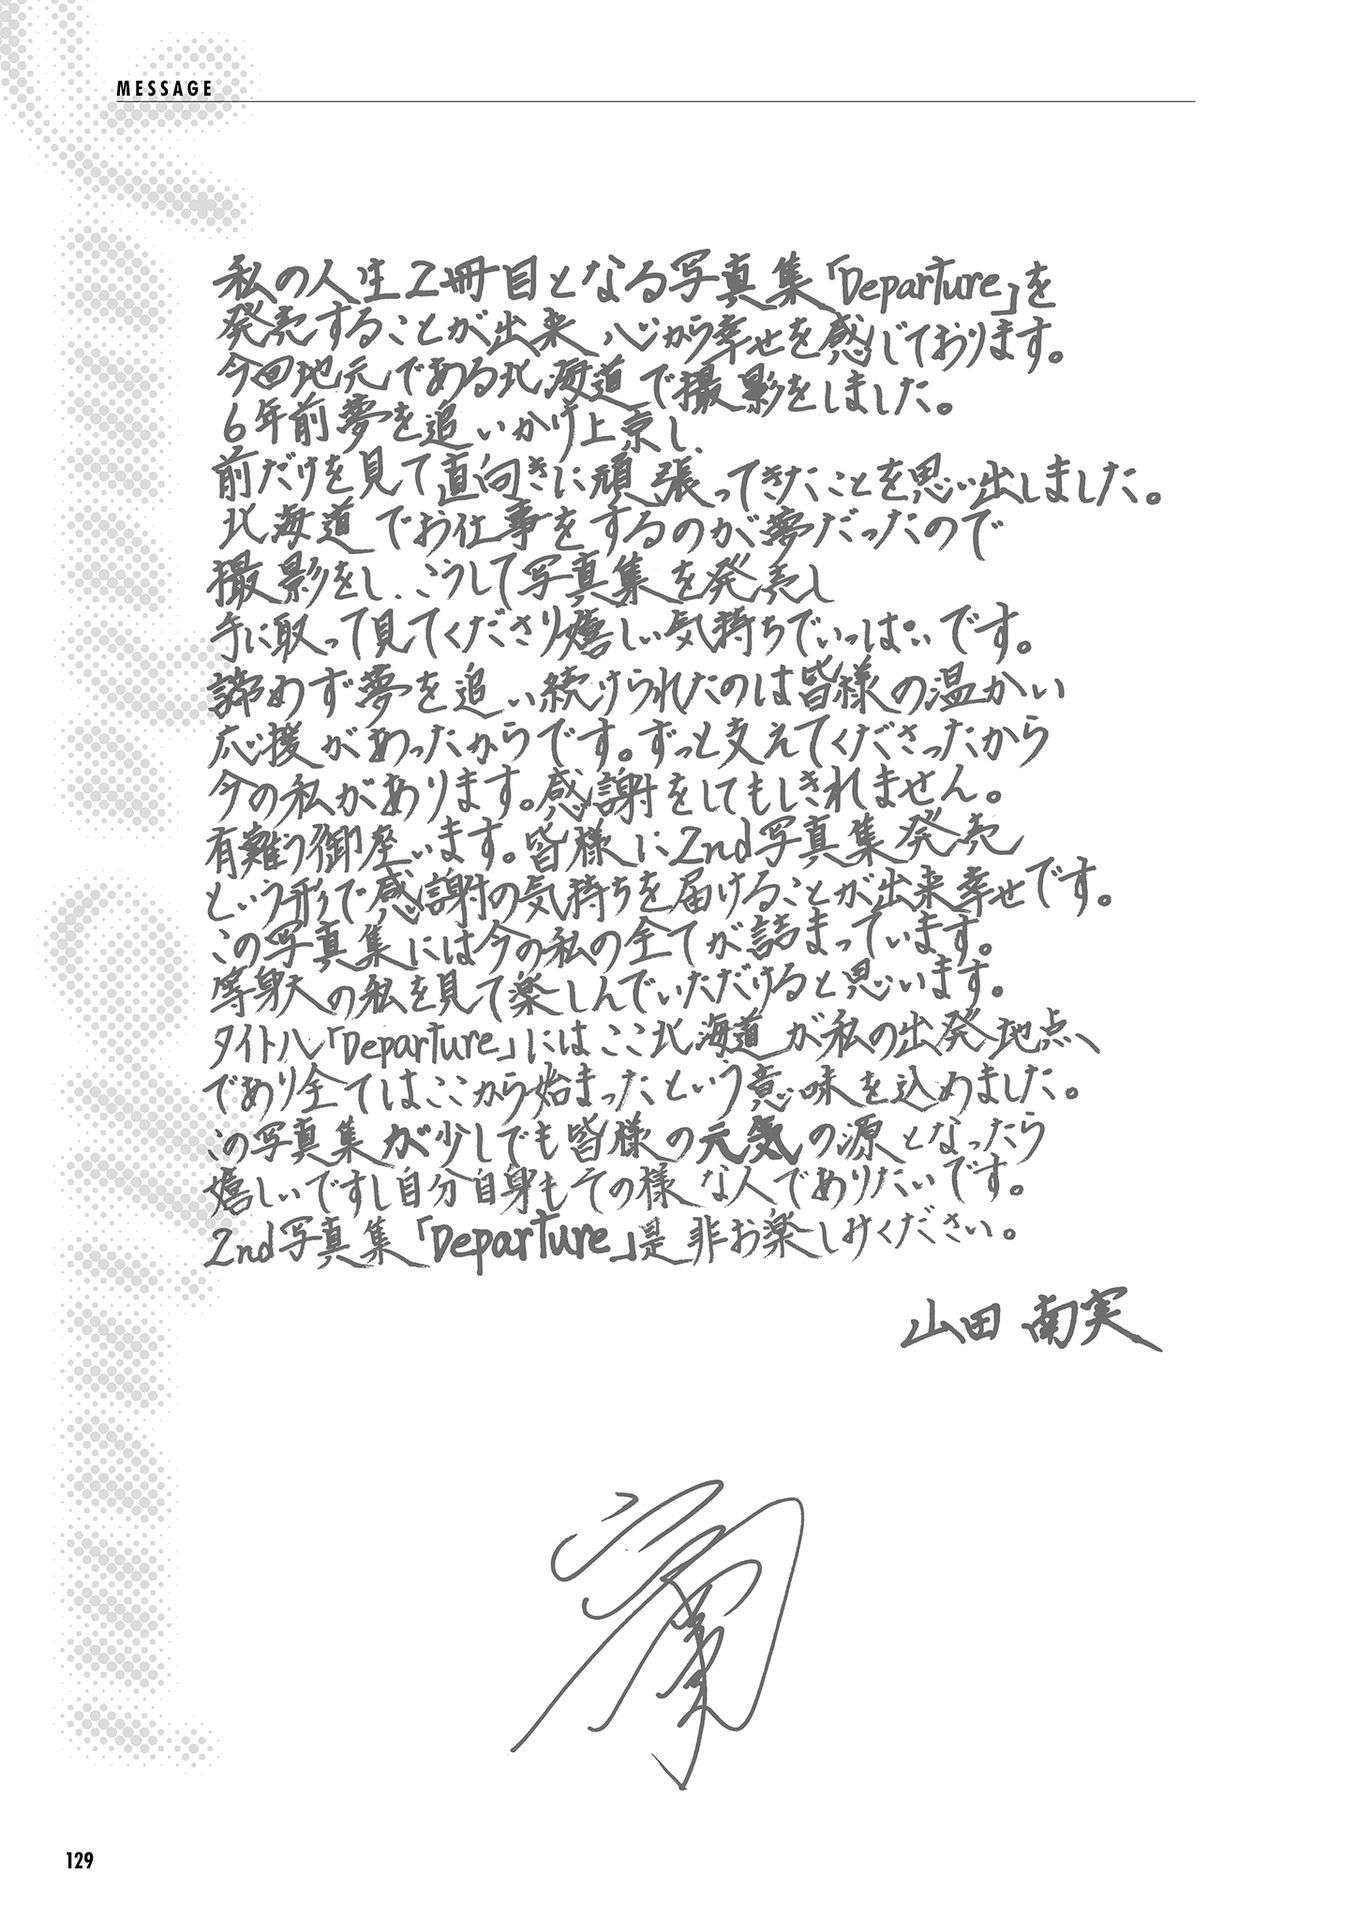 MESSAGE
私の人生2冊目となる写真集「Departure」を
発売することが出来、心から幸せを感じております。
今回地元である北海道で撮影をしました。
6年前夢を追いかけ上京し、
前だけを見て直向きに頑張ってきたことを思い出しました。
北海道でお仕事をするのが夢だったので
撮影をし、こうして写真集を発売し
手に取って見てくださり嬉しい気持ちでいっぱいです。
諦めず夢を追い続けられたのは皆様の温かい
応援があったからです。ずっと支えてくださったから
今の私があります。感謝をしてもしきれません。
有難う御座います。皆様に2nd写真集発売
という形で感謝の気持ちを届けることが出来幸せです。
この写真集には今の私の全てが詰まっています。
等身大の私を見て楽しんでいただけると思います。
タイトル「Departure」にはここ北海道が私の出発地点、
であり全てはここから始まったという意味を込めました。
この写真集が少しでも皆様の元気の源となったら
嬉しいですし自分自身もその様な人でありたいです。
2nd写真集「Departure」是非お楽しみください。
山田 南実
129